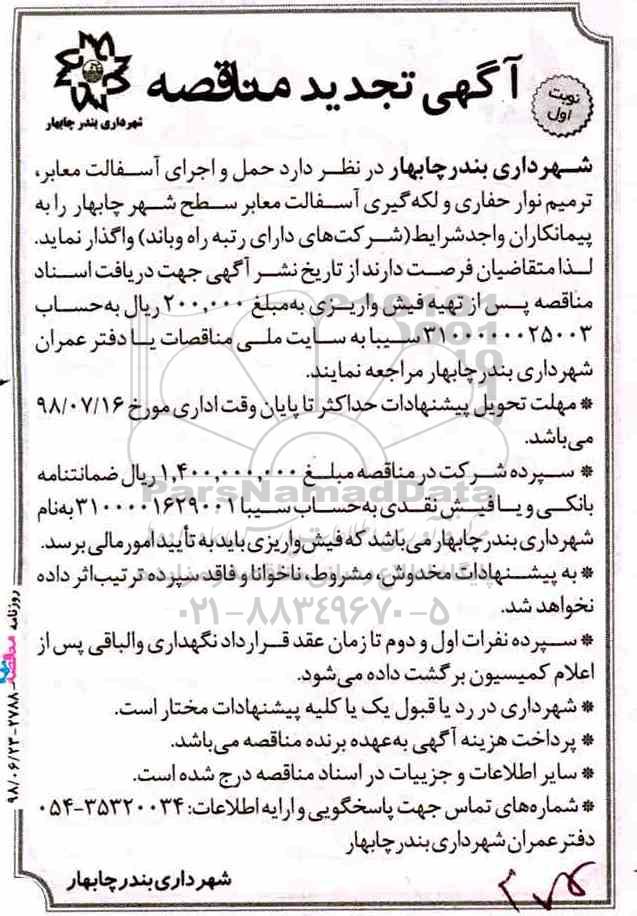 آگهی تجدید مناقصه
نوبت
اول
شهرداری بندر چابهار
شهرداری بندرچابهار در نظر دارد حمل و اجرای آسفالت معابر،
ترمیم نوار حفاری و لکه‌گیری آسفالت معابر سطح شهر چابهار را به
پیمانکاران واجدشرایط(شرکت‌های دارای رتبه راه وباند) واگذار نماید.
لذا متقاضیان فرصت دارند از تاریخ نشر آگهی جهت دریافت اسناد
مناقصه پس از تهیه فیش واریزی به‌مبلغ ۲۰۰,۰۰۰ ریال به‌حساب
سیبا به سایت ملی مناقصات یا دفتر عمران
شهرداری بندرچابهار مراجعه نمایند.
* مهلت تحویل پیشنهادات حداکثر تا پایان وقت اداری مورخ ۹۸/۰۷/۱۶
می‌باشد.
* سپرده شرکت در مناقصه مبلغ ۱,۴۰۰,۰۰۰,۰۰۰ ریال ضمانتنامه
بانکی و یا فیش نقدی به‌حساب سیبا ۳۱۰۰۰۰۱۶۲۹۰۰۱ به‌نام
شهرداری بندرچابهار می‌باشد که فیش واریز باید به تأیید امور مالی برسد.
* به پیشنهادات مخدوش، مشروط، ناخوانا و فاقد سپرده ترتیب‌اثر داده
نخواهد شد.
* سپرده نفرات اول و دوم تا زمان عقد قرارداد نگهداری والباقی پس از
اعلام کمیسیون برگشت داده می‌شود.
* شهرداری در رد یا قبول یک یا کلیه پیشنهادات مختار است.
* پرداخت هزینه آگهی به‌عهده برنده مناقصه می‌باشد.
* سایر اطلاعات و جزییات در اسناد مناقصه درج شده است.
* شماره‌های تماس جهت پاسخگویی و ارایه اطلاعات: ۳۵۳۲۰۰۳۴-۰۵۴
دفتر عمران شهرداری بندرچابهار
شهرداری بندرچابهار
روزنامه مناقصه ۲۷۸۸-۹۸/۰۶/۲۳
ParsNamadData
۰۲۱-۸۸۳۴۹۶۷۰-۵